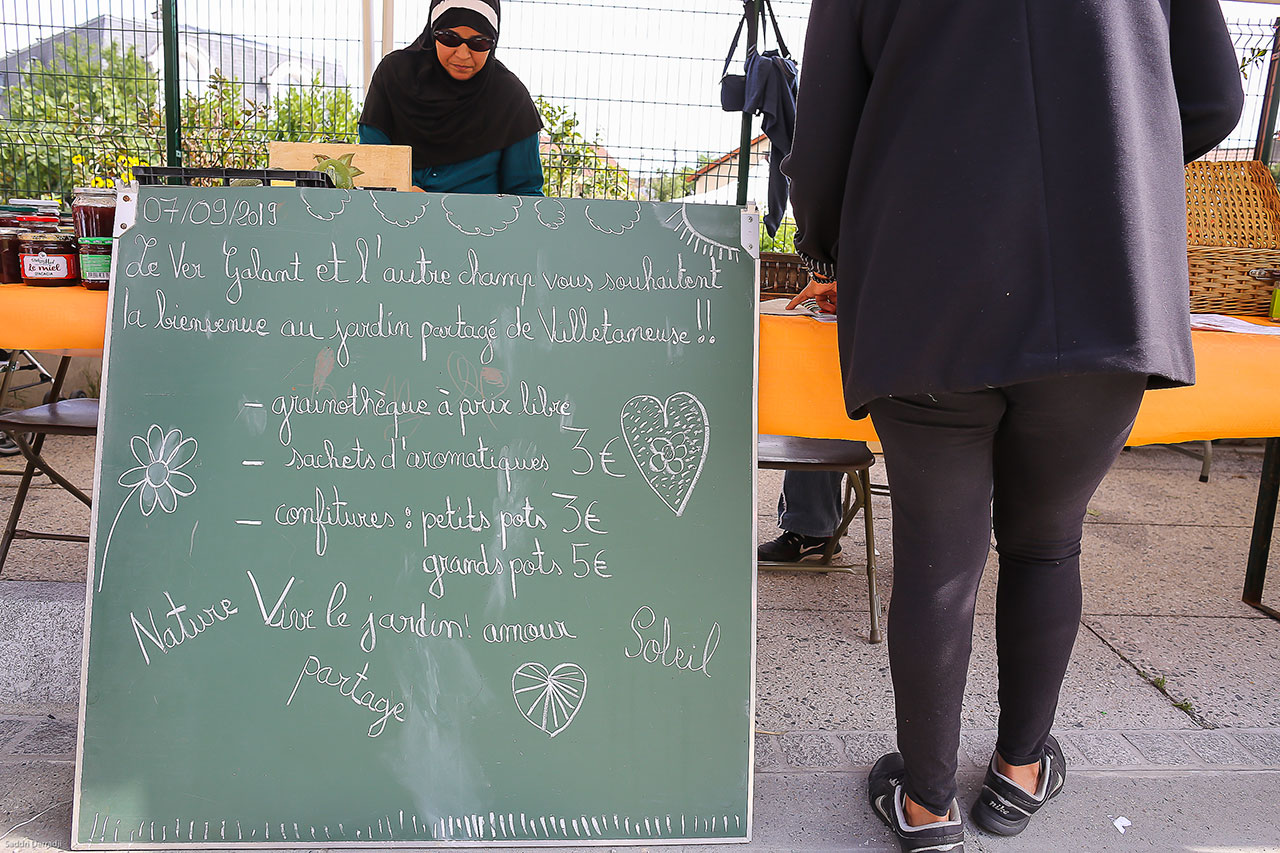 07/09/2019
Le Ver Galant et l'autre champ vous souhaitent
la bienvenue au jardin partagé de Villetaneuse !!
- grainothèque à prix libre
- sachets d'aromatiques 3€
- confitures : petits pots 3€
grands pots 5€
Nature Vive le jardin! amour Soleil
partage
le miel
D'ACACIA